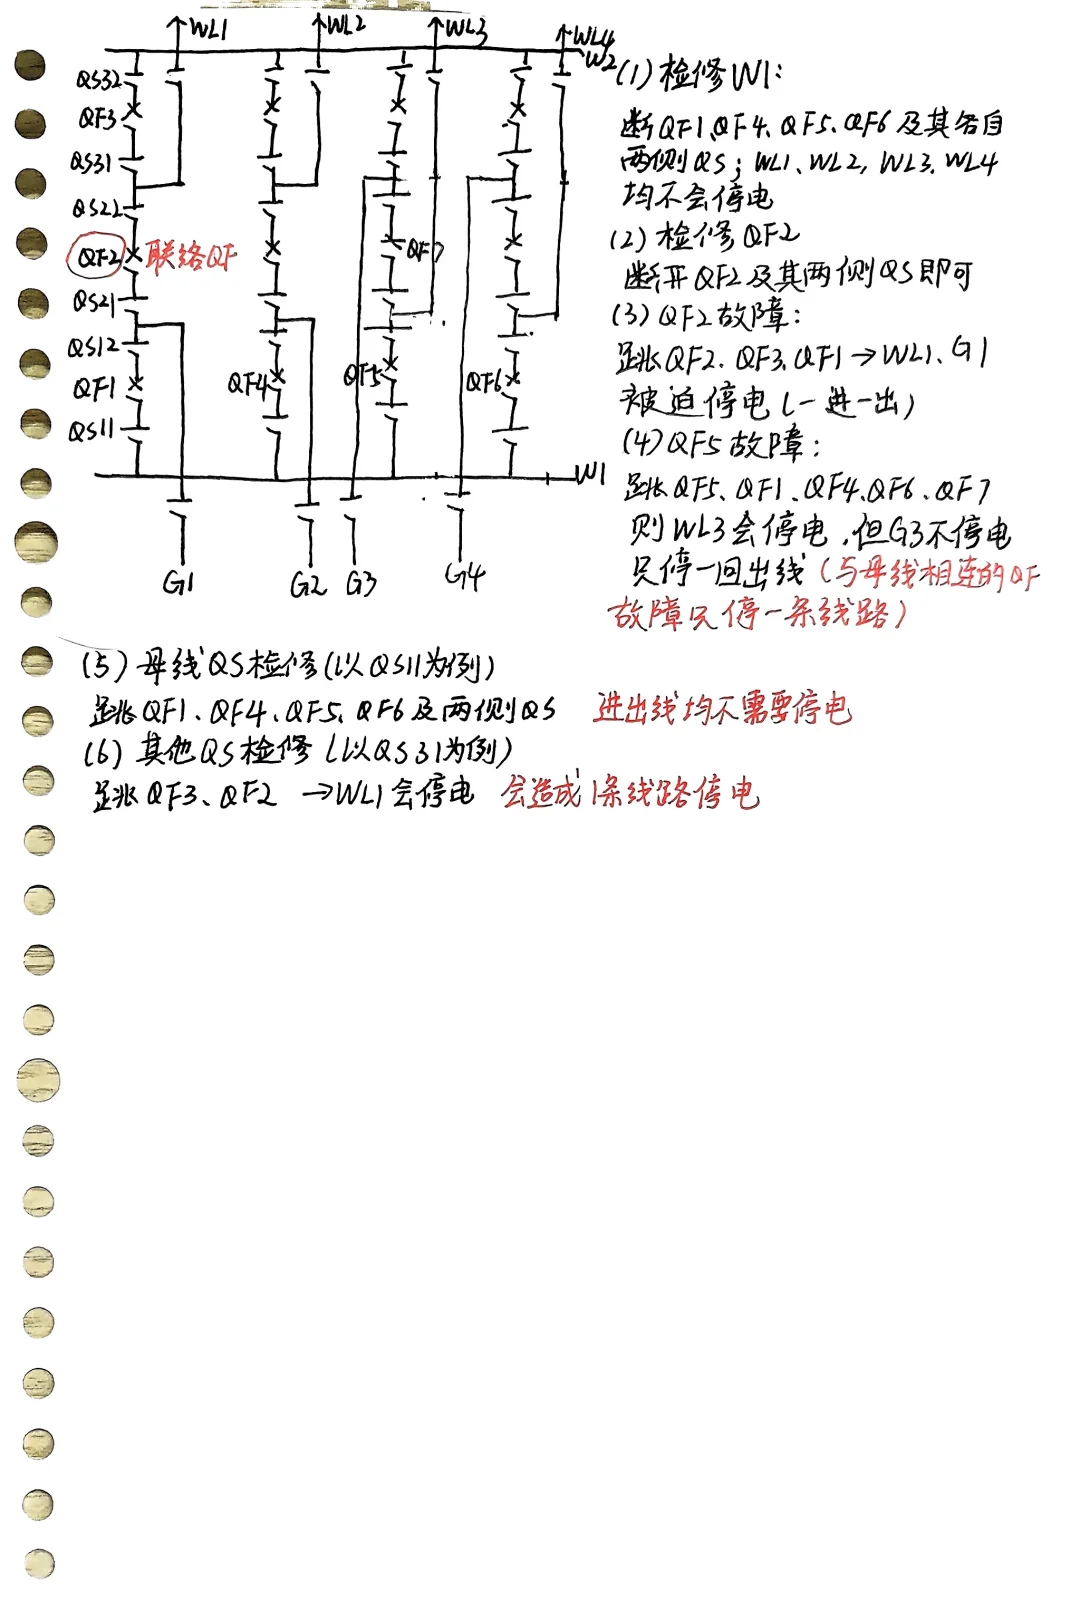 WL1
WL2
WL3
WL4
W2
QS32
QF3
QS31
QS22
QF2
联络QF
QS21
QS12
QF1
QS11
QF4
QF7
QF5
QF6
W1
G1
G2
G3
G4
(1)检修W1:
断QF1、QF4、QF5、QF6及其各自
两侧QS;WL1、WL2,WL3.WL4
均不会停电
(2)检修QF2
断开QF2及其两侧QS即可
(3)QF2故障:
跳QF2.QF3.QF1→WL1、G1
被迫停电(一进一出)
(4)QF5故障:
跳QF5、QF1、QF4、QF6、QF7
则WL3会停电,但G3不停电
只停一回出线(与母线相连的QF
故障只停一条线路)
(5)母线QS检修(以QS11为例)
跳QF1、QF4、QF5、QF6及两侧QS 进出线均不需要停电
(6)其他QS检修(以QS31为例)
跳QF3、QF2 →WL1会停电 会造成1条线路停电